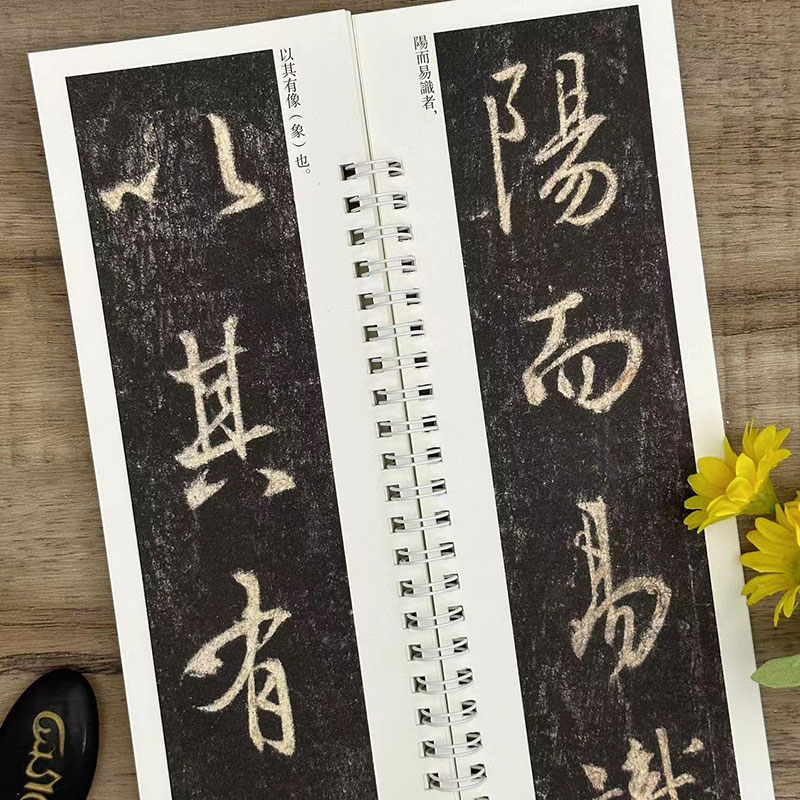 陽而易識者,
陽而易識
以其有像(象)也。
以其有